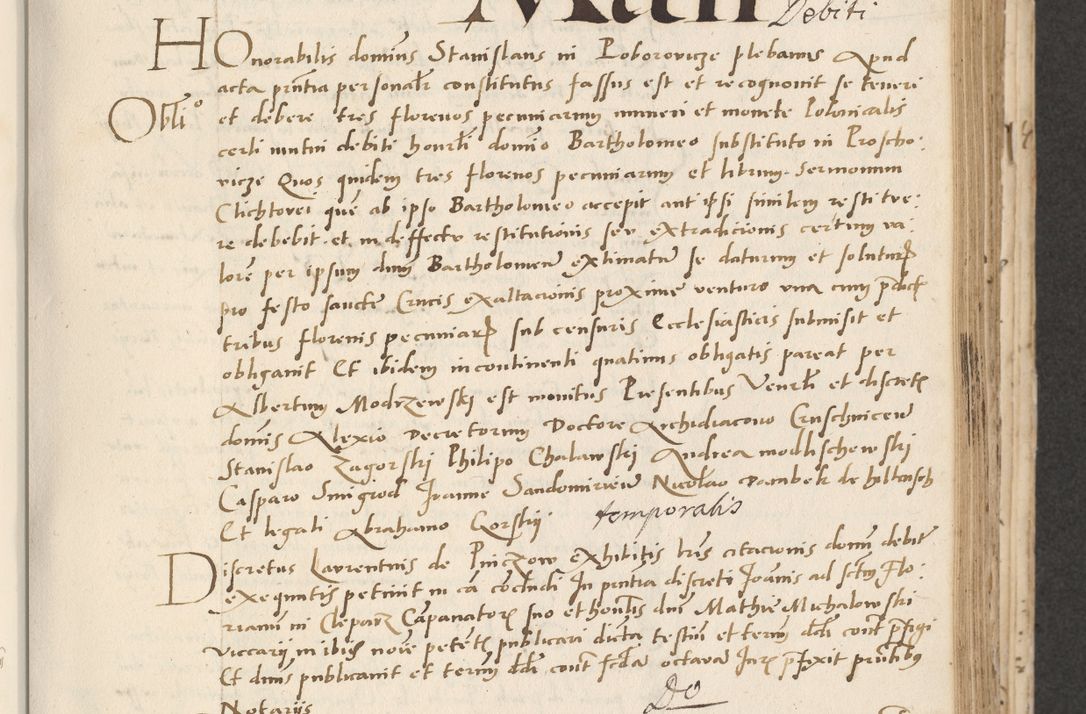 Debiti
Honorabilis dominus Stanislaus in Poborovicze plebanus Apud
acta pñtia personalr constitutus fassus est et recognovit se teneri
Obłio
et debere tres florenos pecuniarum numeri et monete Polonicalis
certi mutui debiti honrłi domino Bartholomeo substituto in Proscho:
vicze Quos quidem tres florenos pecuniarum et librum Sermonum
Clichtovei quem ab ipso Bartholomeo accepit aut ipsi similem restitue:
re debebit et in deffectu restitutionis seu extradicionis certum va:
lorem per ipsum dnm Bartholomeum extimatum se daturum et soluturum
pro festo sancte Crucis exaltacionis proxime venturo una cum pdictis
tribus florenis pecuniarum sub censuris Ecclesiasticis submisit et
obligavit Et ibidem incontinenti quatinus obligatis pareat per
Albertum Modrzewski est monitus Presentibus Venrłi et discretis
dominis Alexio Decretorum Doctore Archidiacono Cruschvicen
Stanislao Zagorski Philipo Chalawski Andrea modlischewski
Casparo Smigrod Joanne Sandomirien Nicolao Dambek de
Et legali Abrahamo Gorskij
temporalis
Discretus Laurentius de Pinczow exhibitis lris citacionis domini debite
exequutis petivit in ca concludi In pñtia discreti Joannis ad sctm Flo:
rianum in Cleparz Campanatoris suo et honrłis dni Mathie Michalowski
viccarii in ibus nomine petentis publicari dicta testium et termi ddi cont pfigi
Et dnus publicavit et termi ddi cont octavam Juris pfixit pñtibus
Notariis
Do